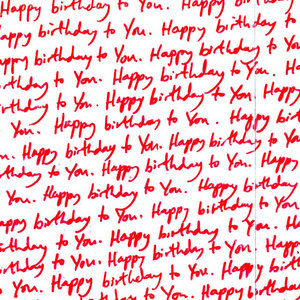 Happy birthday to You. Happy
Happy birthday to You. Happy birthday
appy birthday to You. Happy birthday to
birthday to You. Happy birthday to You. H
birthday to You. Happy birthday to You.
You. Happy birthday to You. Happy birthday
Happy birthday to You. Happy birth
birthday to You. Happy birthday to You.
You. Happy birthday to You. Happy
Happy birthday to You. Happy birthday
birthday to You. Happy birthday to You
to You. Happy birthday to You. Happy
Happy birthday to You. Happy birthday